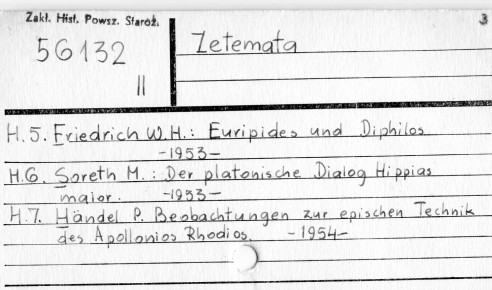 Zakł. Hist. Powsz. Staroż.
3
56132
II
Zetemata
H. 5. Friedrich W. H. : Euripides und Diphilos
-1953-
H.6. Soreth M. : Der platonische Dialog Hippias
maior. -1953-
H.7. Händel P. Beobachtungen zur epischen Technik
des Apollonios Rhodios. -1954-